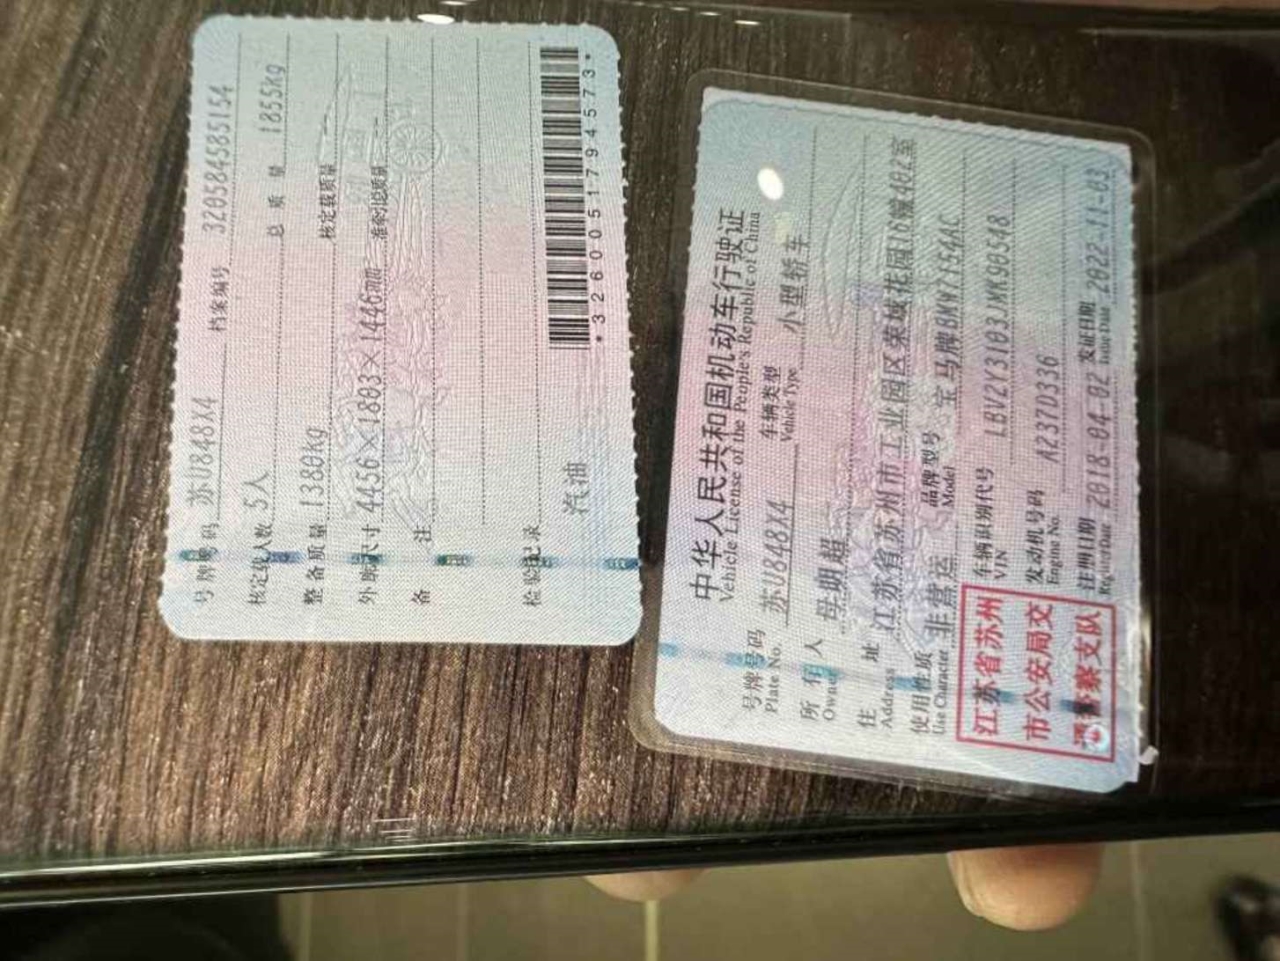 号牌号码 苏U848X4 档案编号 320584585154
核定载人数 5人 总质量 1855kg
整备质量 1380kg 核定载质量 --
外廓尺寸 4456×1803×1446mm 准牵引总质量 --
备注
检验记录
汽油
*3260051794573*
中华人民共和国机动车行驶证
Vehicle License of the People's Republic of China
号牌号码 苏U848X4 车辆类型 小型轿车
Plate No. Vehicle Type
所有人 母朝超
Owner
住址 江苏省苏州市工业园区荣域花园16幢402室
Address
使用性质 非营运 品牌型号 宝马牌BMW7154AC
Use Character Model
车辆识别代号 LBV2Y3103JMK90548
VIN
发动机号码 A237D336
Engine No.
注册日期 2018-04-02 发证日期 2022-11-03
Register Date Issue Date
江苏省苏州
市公安局交
通警察支队